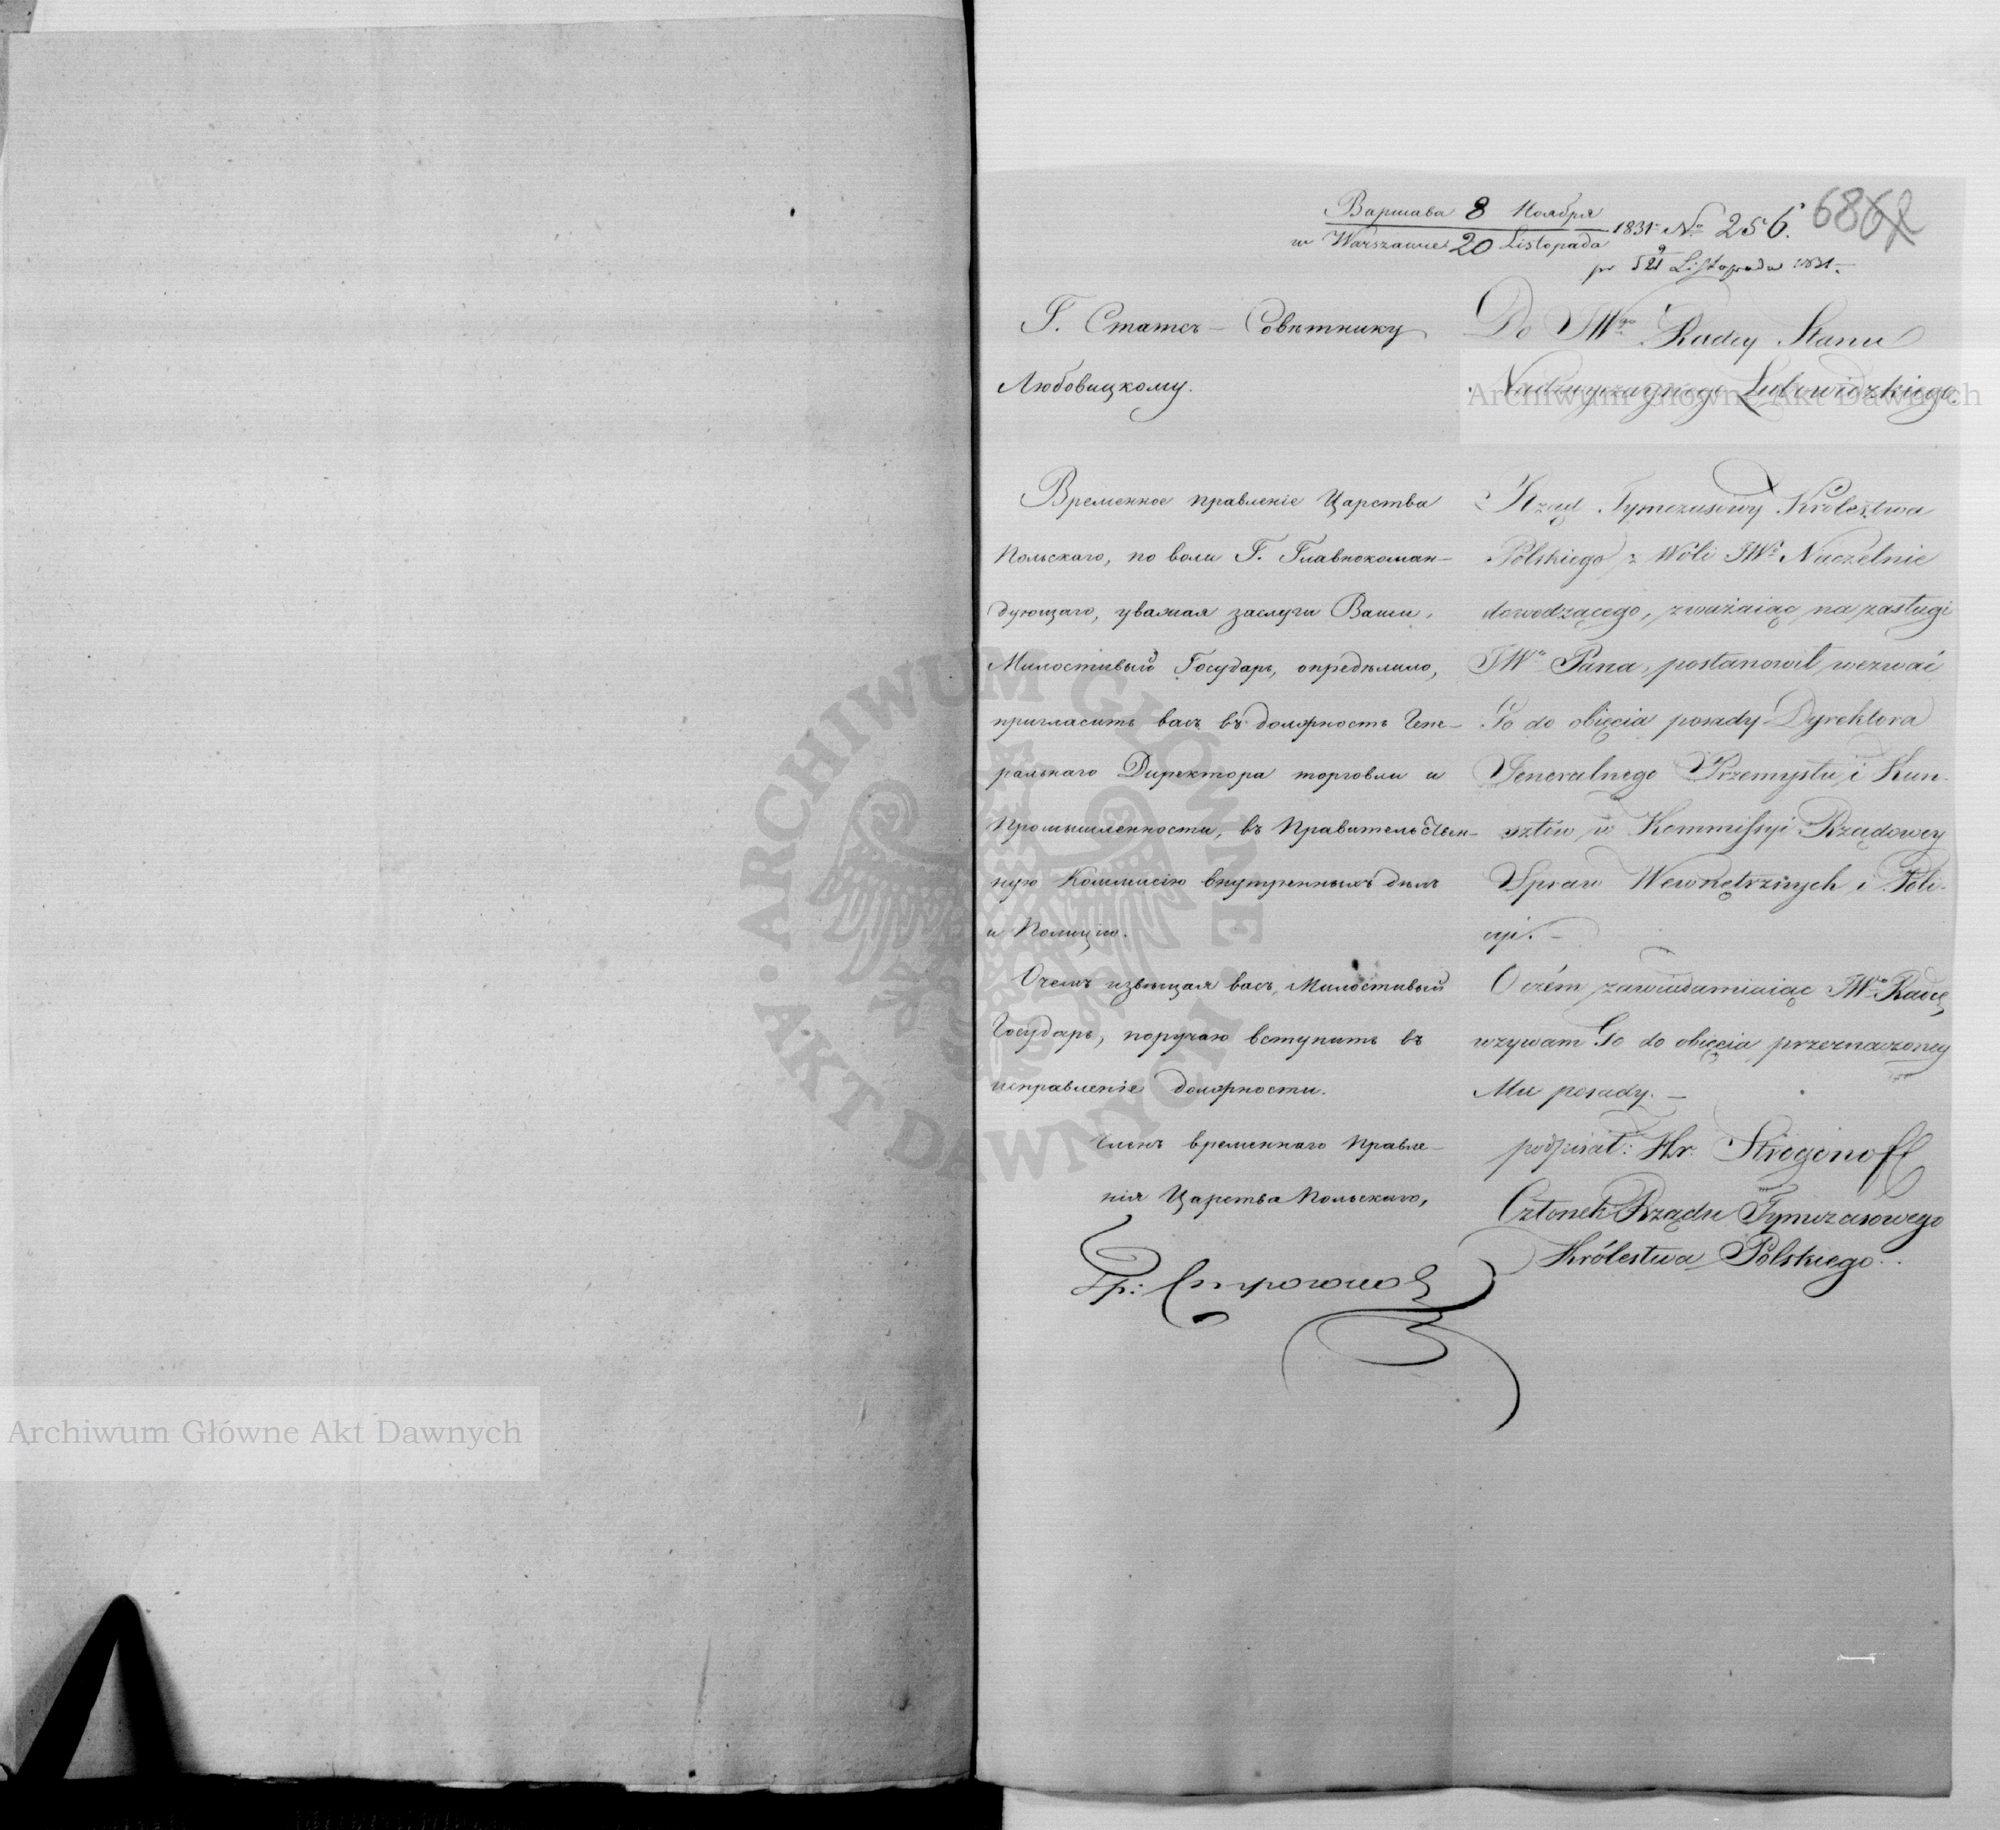 Варшава 8 Ноября
w Warszawie 20 Listopada 1831 No 256.
pr 9/21 Listopada 1831.
Г. Статсъ-Совѣтнику
Любовицкому.
Временное Правленіе Царства
Польскаго, по воли Г. Главнокоман-
дующаго, уважая заслуги Ваши,
Милостивый Государь, опредѣлило,
пригласить васъ въ должность Гене-
ральнаго Директора торговли и
Промышленности, въ Правительствен-
ную Коммисію внутреннихъ дѣлъ
и Полиціи.
О чемъ извѣщая васъ, Милостивый
Государь, поручаю вступить въ
исправленіе должности.
Членъ временнаго Правле-
нія Царства Польскаго,
Гр: Строгоновъ
Do JWgo Radcy Stanu
Nadzwyczaynego Lubowidzkiego.
Rząd Tymczasowy Królestwa
Polskiego z Woli JWo Naczelnie
dowodzącego, zważaiąc na zasługi
JWo Pana, postanowił wezwać
Go do obięcia posady Dyrektora
Jeneralnego Przemysłu i Kun-
sztów w Kommissyi Rządowey
Spraw Wewnętrznych i Poli-
cyi. —
O czém zawiadamiaiąc JWo Radcę,
wzywam Go do obięcia przeznaczoney
Mu posady. —
podpisał: Hr Strogonoff
Członek Rządu Tymczasowego
Królestwa Polskiego.
Archiwum Główne Akt Dawnych
Archiwum Główne Akt Dawnych
ARCHIWUM GŁÓWNE AKT DAWNYCH